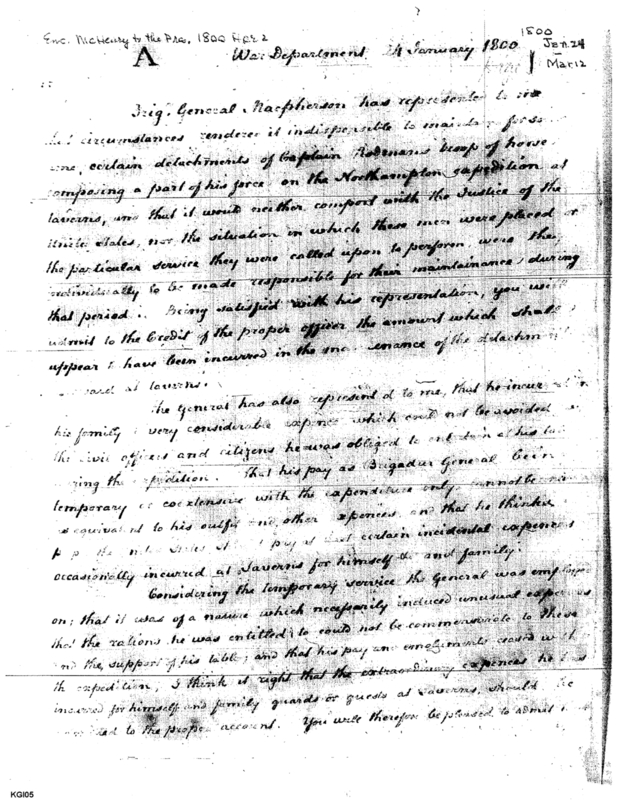 Enc. McHenry to the Pres. 1800 Apr 2
1800
A
War Department 24 January 1800
Jan. 24
Mar 12
Brig. General Macpherson has represented to me
that circumstances rendered it indispensible to maintain for
certain detachments of Captain Rodman's troop of horse
composing a part of his force on the Northampton expedition at
taverns, and that it would neither comport with the Justice of the
United States, nor the situation in which these men were placed or
the particular service they were called upon to perform were they
individually to be made responsible for their maintainance during
that period. Being satisfied with his representation, you will
admit to the Credit of the proper officer the amount which shall
appear to have been incurred in the maintenance of the detachment
at taverns.
The General has also represented to me, that he incurred in
his family a very considerable expence which could not be avoided
the civic officers and citizens he was obliged to entertain at his table
during the expedition. That his pay as Brigadier General being
temporary coextensive with the expenditure only cannot be
equivalent to his outfit and other expences, and that he thinks
the United States pay certain incidental expences
occasionally incurred at Taverns for himself and family.
Considering the temporary service the General was employed
on; that it was of a nature which necessarily induced unusual expences
that the rations he was entitled to could not be commensurate to these
and the support of his table; and that his pay and emoluments ceased with
the expedition; I think it right that the extraordinary expences he has
incurred for himself and family guards or guests at Taverns, should be
to the proper account. You will therefore be pleased to admit
KGI05